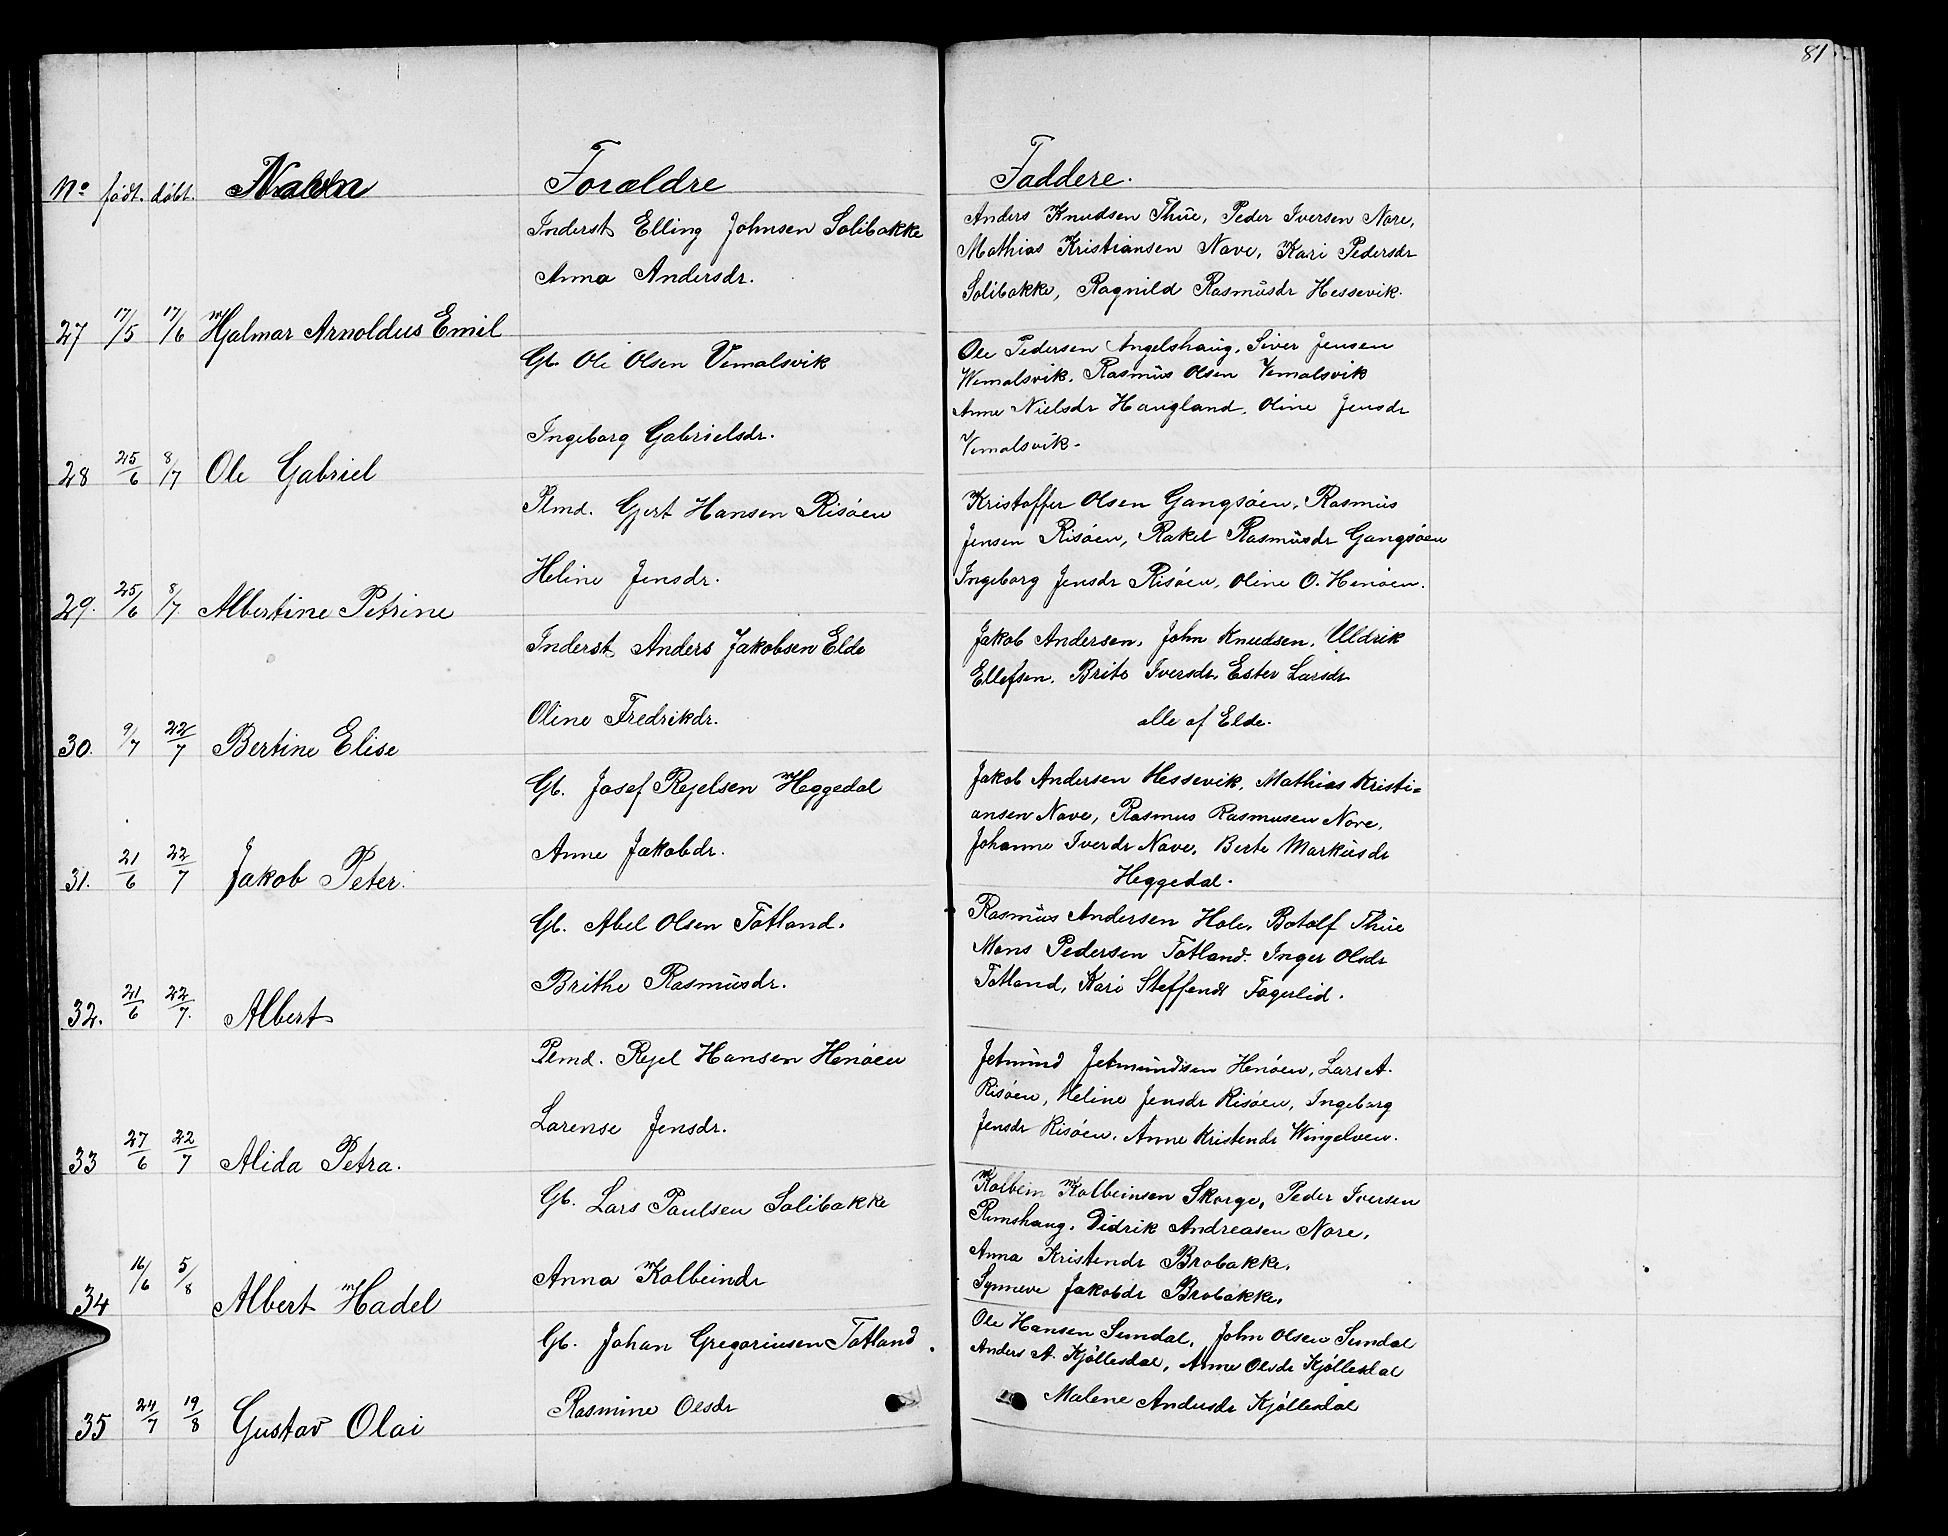 81
No født. døbt. Navn Forældre Faddere.
Inderst Elling Johnsen Solibakke
Anna Andersdr.
Anders Knudsen Thue, Peder Iversen Nore,
Mathias Kristiansen Nave, Kari Pedersdr
Solibakke, Ragnild Rasmusdr Hessevik.
27 17/5 17/6 Hjalmar Arnoldus Emil
Gb. Ole Olsen Vemalsvik
Ingeborg Gabrielsdr.
Ole Pedersen Angelshaug, Siver Jensen
Wemalsvik, Rasmus Olsen Vemalsvik
Anne Nielsdr Haugland, Oline Jensdr
Vemalsvik.
28 25/6 8/7 Ole Gabriel
Plmd. Gjert Hansen Risøen
Heline Jensdr.
Kristoffer Olsen Gangsøen, Rasmus
Jensen Risøen, Rakel Rasmusdr Gangsøen
Ingeborg Jensdr Risøen, Oline O. Henøen.
29. 25/6 8/7. Albertine Petrine
Inderst Anders Jakobsen Elde
Oline Fredrikdr.
Jakob Andersen, John Knudsen, Uldrik
Ellefsen, Brite Iversdr, Ester Larsdr
alle af Elde.
30. 9/7 22/7 Bertine Elise
Gb. Josef Rejelsen Heggedal
Anne Jakobdr.
Jakob Andersen Hessevik, Mathias Kristi=
ansen Nave, Rasmus Rasmusen Nore,
Johanne Iverdr Nave, Berte Markusdr
Heggedal.
31. 21/6 22/7 Jakob Peter.
Gb. Abel Olsen Totland.
Brithe Rasmusdr.
Rasmus Andersen Hole, Botolf Thue
Mons Pedersen Totland. Inger Olsdr
Totland, Kari Steffendr Fagerlid.
32. 21/6 22/7. Albert
Plmd. Rejel Hansen Henøen
Larense Jensdr.
Jetmund Jetmundsen Henøen, Lars A.
Risøen, Heline Jensdr Risøen, Ingeborg
Jensdr Risøen, Anne Kristendr Wingelven.
33 27/6 22/7 Alida Petra.
Gb. Lars Paulsen Solibakke
Anna Kolbeindr
Kolbein Kolbeinsen Skorge, Peder Iversen
Rimshaug, Didrik Andreasen Nore,
Anna Kristendr Brobakke,
Synneve Jakobdr Brobakke,
34 16/6 5/8 Albert Hadel
Gb. Johan Gregoriusen Totland.
Rasmine Olsdr
Ole Hansen Sundal, John Olsen Sundal
Anders A. Kjøllesdal, Anne Olsdr Kjøllesdal
Malene Andersdr Kjøllesdal
35 24/7 19/8 Gustav Olai